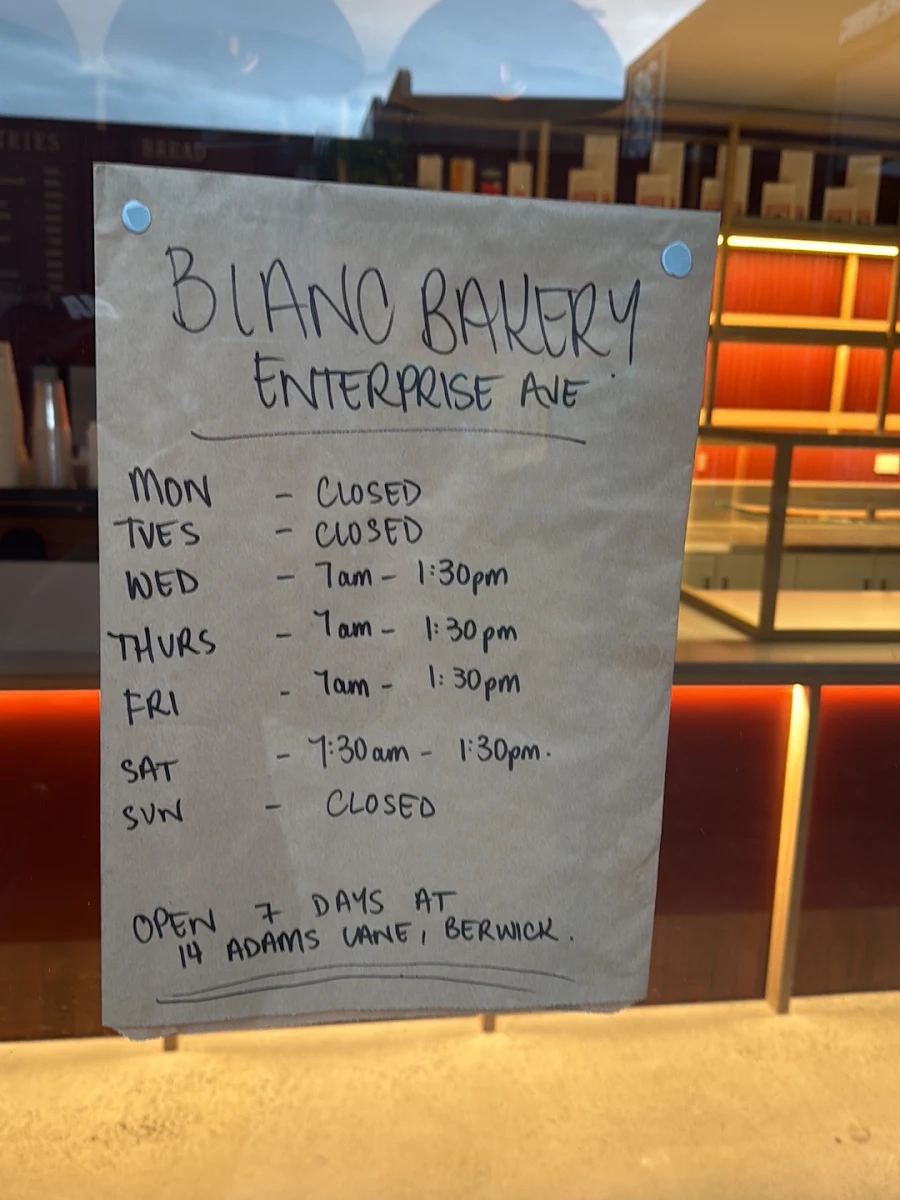 TRIES
BREAD
BLANC BAKERY
ENTERPRISE AVE
MON - CLOSED
TUES - CLOSED
WED - 7am - 1:30pm
THURS - 7am - 1:30pm
FRI - 7am - 1:30pm
SAT - 7:30am - 1:30pm.
SUN - CLOSED
OPEN 7 DAYS AT
14 ADAMS LANE, BERWICK.